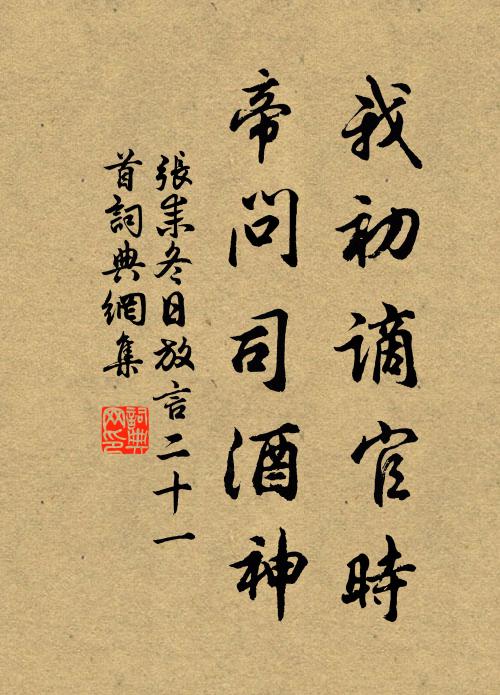 我初謫官時
帝問司酒神
張耒冬日放言二十一
首詞典網集
詞典網印